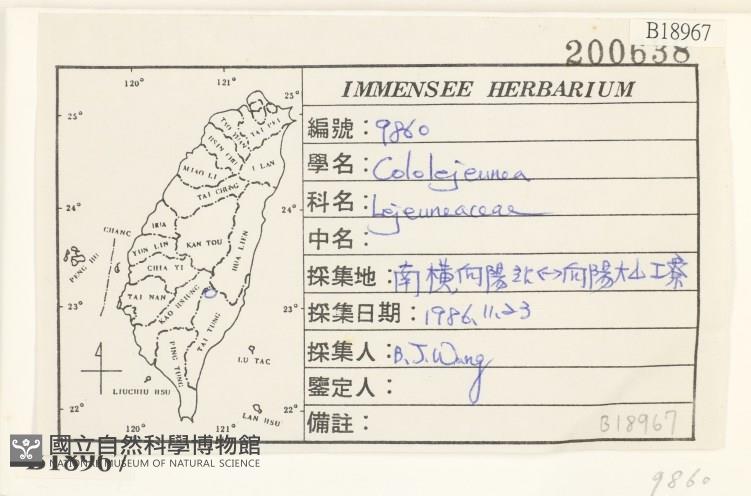 B18967
200638
IMMENSEE HERBARIUM
編號：9860
學名：Cololejeunea
科名：Lejeuneaceae
中名：
採集地：南橫向陽北↔向陽大山工寮
採集日期：1986.11.23
採集人：B.J.Wang
鑒定人：
備註：
B18967
120° 121°
25° 25°
TAI PEI
TAO YUAN
HSIN CHU
I LAN
MIAO LI
TAI CHUNG
24° 24°
CHANG
HUA
PENG HU
YUN LIN
KAN TOU
HUA LIEN
CHIA YI
TAI NAN
KAO HSIUNG
23° 23°
TAI TUNG
PING TUNG
LU TAC
LIUCHIU HSU
LAN HSU
22° 22°
120° 121°
國立自然科學博物館
NATIONAL MUSEUM OF NATURAL SCIENCE
B18967
9860